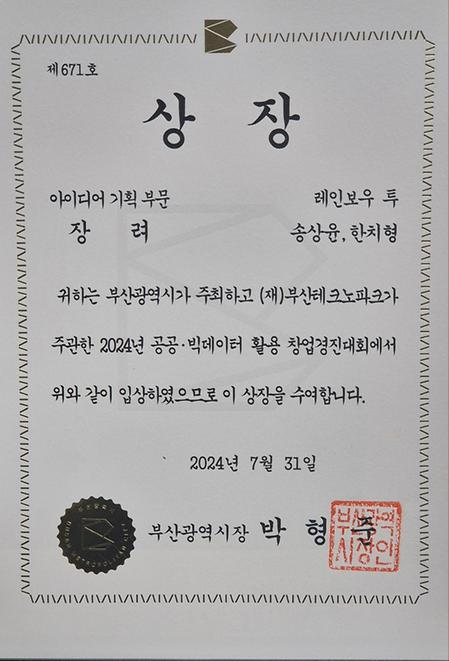 제671호
상 장
아이디어 기획 부문 레인보우 투
장 려 송상윤, 한치형
귀하는 부산광역시가 주최하고 (재)부산테크노파크가
주관한 2024년 공공·빅데이터 활용 창업경진대회에서
위와 같이 입상하였으므로 이 상장을 수여합니다.
2024년 7월 31일
부산광역시장 박 형 준
부산광역
시장인